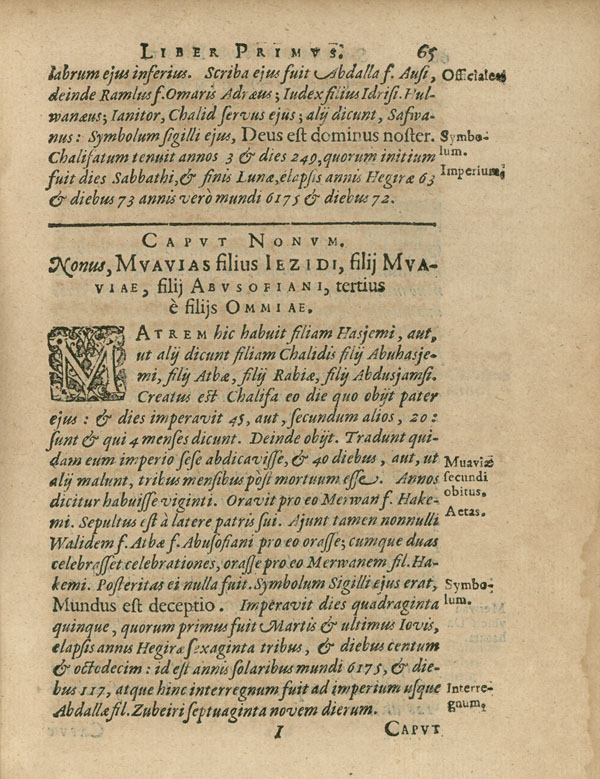 LIBER PRIMVS. 65
labrum ejus inferius. Scriba ejus fuit Abdalla f. Ausi,
deinde Ramlus f. Omaris Adræus; Iudex filius Idrisi. Hul-
wanæus; Ianitor, Chalid servus ejus; alij dicunt, Safwa-
nus: Symbolum sigilli ejus, Deus est dominus noster.
Chalifatum tenuit annos 3 & dies 249, quorum initium
fuit dies Sabbathi, & finis Lunæ, elapsis annis Hegiræ 63
& diebus 73 annis verò mundi 6175 & diebus 72.
Officiales
Symbo-
lum.
Imperium.
CAPVT NONVM.
Nonus, MVAVIAS filius IEZIDI, filij MVA-
VIAE, filij ABVSOFIANI, tertius
è filijs OMMIAE.
MATREM hic habuit filiam Hasjemi, aut,
ut alij dicunt filiam Chalidis filij Abuhasje-
mi, filij Atbæ, filij Rabiæ, filij Abdusjamsi.
Creatus est Chalifa eo die quo obijt pater
ejus: & dies imperavit 45, aut, secundum alios, 20:
sunt & qui 4 menses dicunt. Deinde obijt. Tradunt qui-
dam eum imperio sese abdicavisse, & 40 diebus, aut, ut
alij malunt, tribus mensibus pòst mortuum esse. Annos
dicitur habuisse viginti. Oravit pro eo Merwan f. Hake-
mi. Sepultus est à latere patris sui. Ajunt tamen nonnulli
Walidem f. Atbæ f. Abusofiani pro eo orasse; cumque duas
celebrasset celebrationes, orasse pro eo Merwanem fil. Ha-
kemi. Posteritas ei nulla fuit. Symbolum Sigilli ejus erat,
Mundus est deceptio. Imperavit dies quadraginta
quinque, quorum primus fuit Martis & ultimus Iovis,
elapsis annis Hegiræ sexaginta tribus, & diebus centum
& octodecim: id est annis solaribus mundi 6175, & die-
bus 117, atque hinc interregnum fuit ad imperium usque
Abdallæ fil. Zubeiri septuaginta novem dierum.
Muaviæ
secundi
obitus.
Aetas.
Symbo-
lum.
Interre-
gnum.
I CAPVT